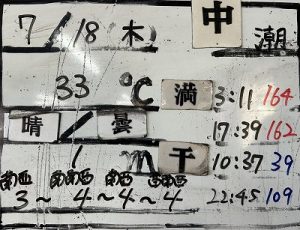 7/18 木 中潮
33 ℃ 満 3:11 164
晴/曇 17:39 162
1 m 干 10:37 39
南西 南南西 南西 西南西
3～4～4～4 22:45 109